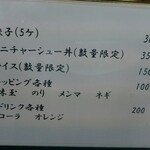 子(5ケ) 3
ニチャーシュー丼(数量限定) 35
イス(数量限定) 150
ッピング各種 100
味玉 のり メンマ ネギ
ドリンク各種 200
コーラ オレンジ